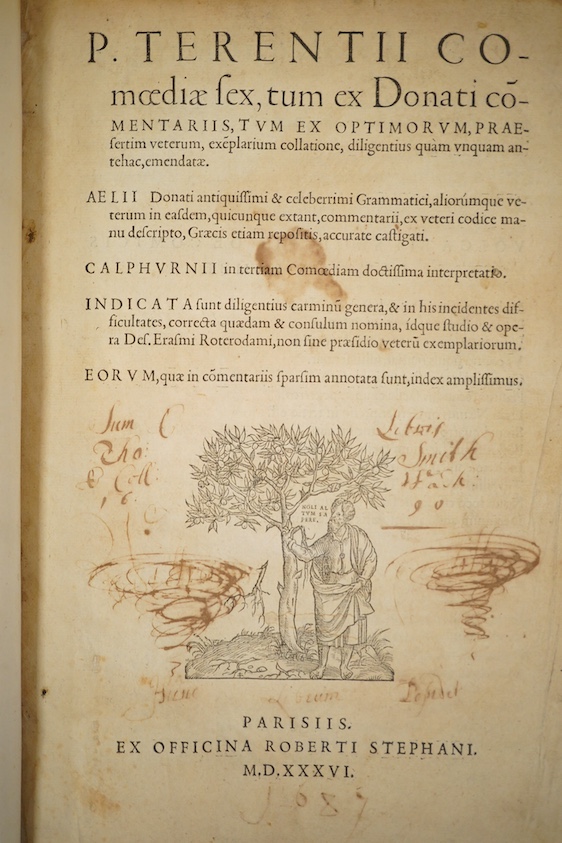 P. TERENTII CO-
mœdiæ ſex, tum ex Donati cō-
MENTARIIS, TVM EX OPTIMORVM, PRAE-
ſertim veterum, exēplarium collatione, diligentius quàm vnquam an-
tehac, emendatæ.
AELII Donati antiquiſſimi & celeberrimi Grammatici, aliorúmque ve-
terum in eaſdem, quicunque extant, commentarij, ex veteri codice ma-
nu deſcripto, Græcis etiam repoſitis, accurate caſtigati.
CALPHVRNII in tertiam Comœdiam doctiſſima interpretatio.
INDICATA ſunt diligentius carminū genera, & in his incidentes dif-
ficultates, correcta quædam & conſulum nomina, ídque ſtudio & ope-
ra Deſ. Eraſmi Roterodami, non ſine præſidio veterū exemplariorum.
EORVM, quæ in cōmentariis ſparſim annotata ſunt, index ampliſſimus.
Sum Libris
Tho: Smith
Coll:
16 90
NOLI AL
TVM SA
PERE.
PARISIIS.
EX OFFICINA ROBERTI STEPHANI.
M.D.XXXVI.